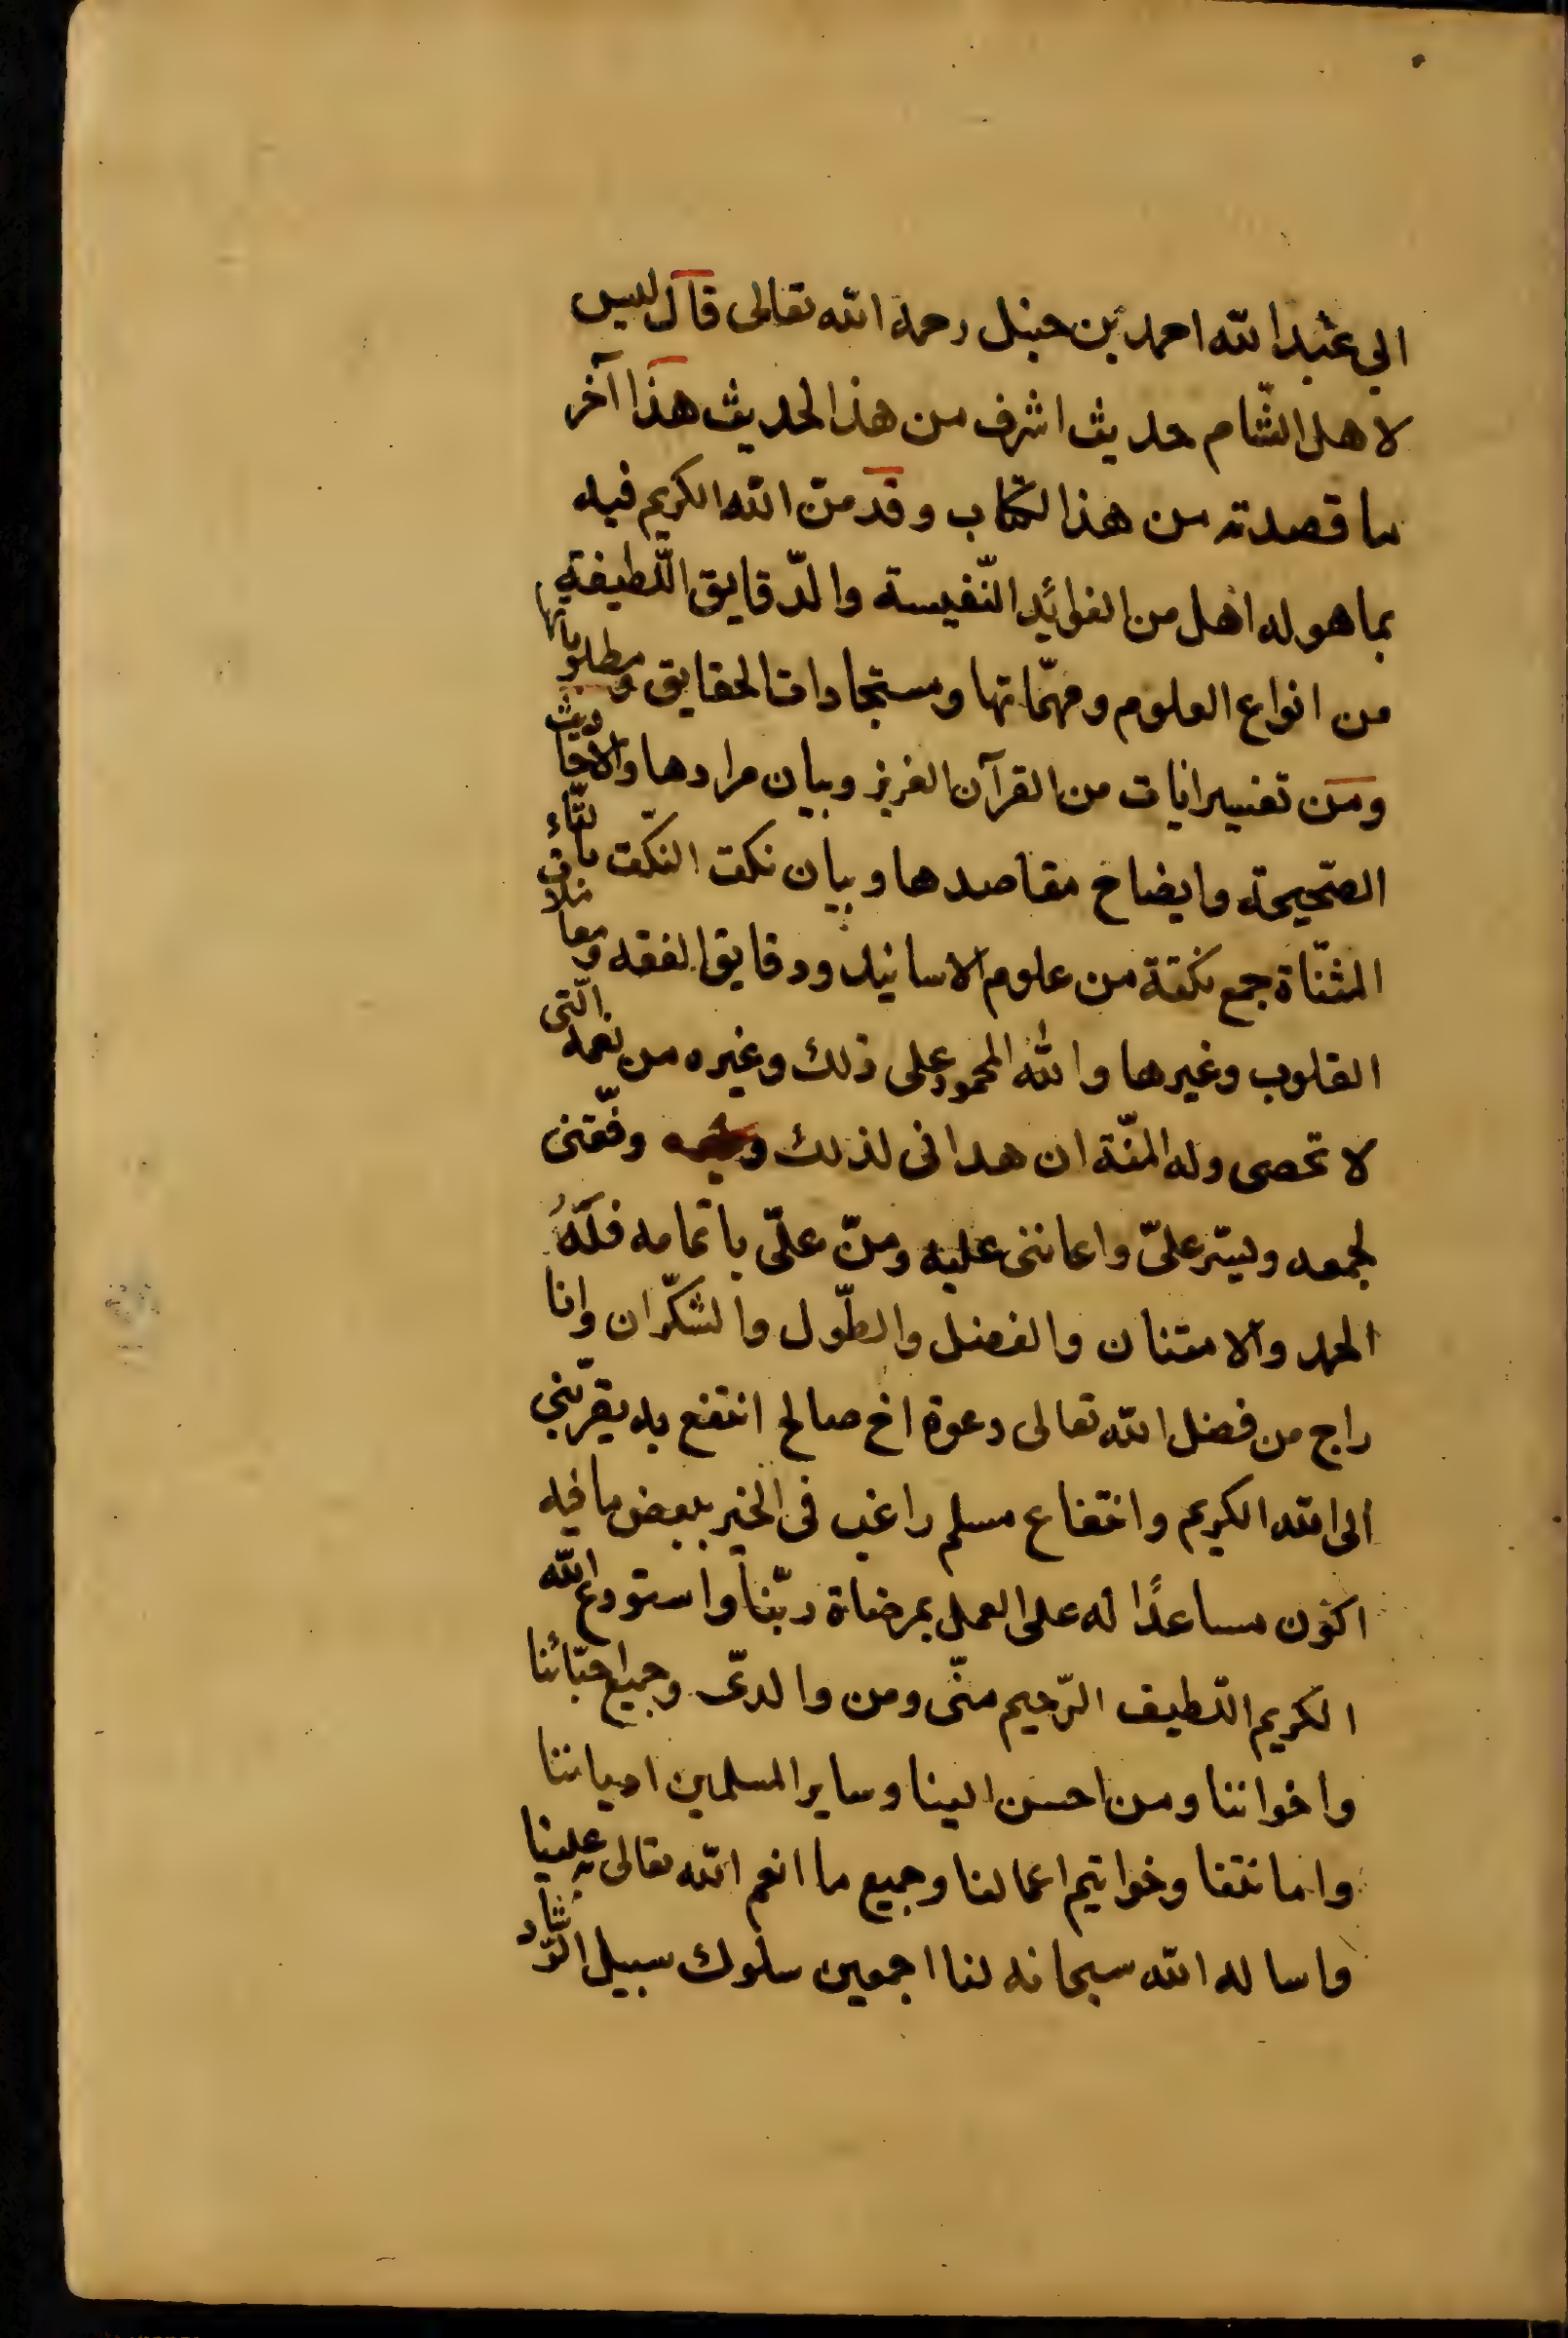 ابي عبد الله احمد بن حنبل رحمه الله تعالى قال ليس
لاهل الشّام حديث اشرف من هذا لحديث هذا آخر
ما قصدته من هذا لكتاب وقد منّ الله الكريم فيه
بما هو له اهل من الفوائد النّفيسة والدّقايق اللّطيفة
من انواع العلوم ومهمّاتها ومستجادات الحقايق ومطلوباتها
ومن تفسير ايات من القرآن العزيز وبيان مرادها والاحاديث
الصّحيحة وايضاح مقاصدها وبيان نكت النكّت بالتّاء
المثنّاة جمع نكتة من علوم الاسانيد ودقايق الفقه ومعاملات
القلوب وغيرها والله المحمود على ذلك وغيره من نعمه الّتى
لا تحصى وله المنّة ان هدانى لذلك وفّقنى
لجمعه ويسّر علىّ واعاننى عليه ومنّ علىّ باتمامه فلَهُ
الحمد والامتنان والفضل والطّول والشكّران وانا
راج من فضل الله تعالى دعوة اخ صالح انتفع به يقرّبنى
الى الله الكريم وانتفاع مسلم راغب فى الخير ببعض ما فيه
اكون مساعدًا له على العمل بمرضاة ربّنا واستودع الله
الكريم اللّطيف الرّحيم منّى ومن والدىّ وجميع احبّائنا
واخواننا ومن احسن الينا وساير المسلمين ادياننا
واماناتنا وخواتيم اعمالنا وجميع ما انعم الله تعالى به علينا
واساله الله سبحانه لنا اجمعين سلوك سبيل الرّشاد